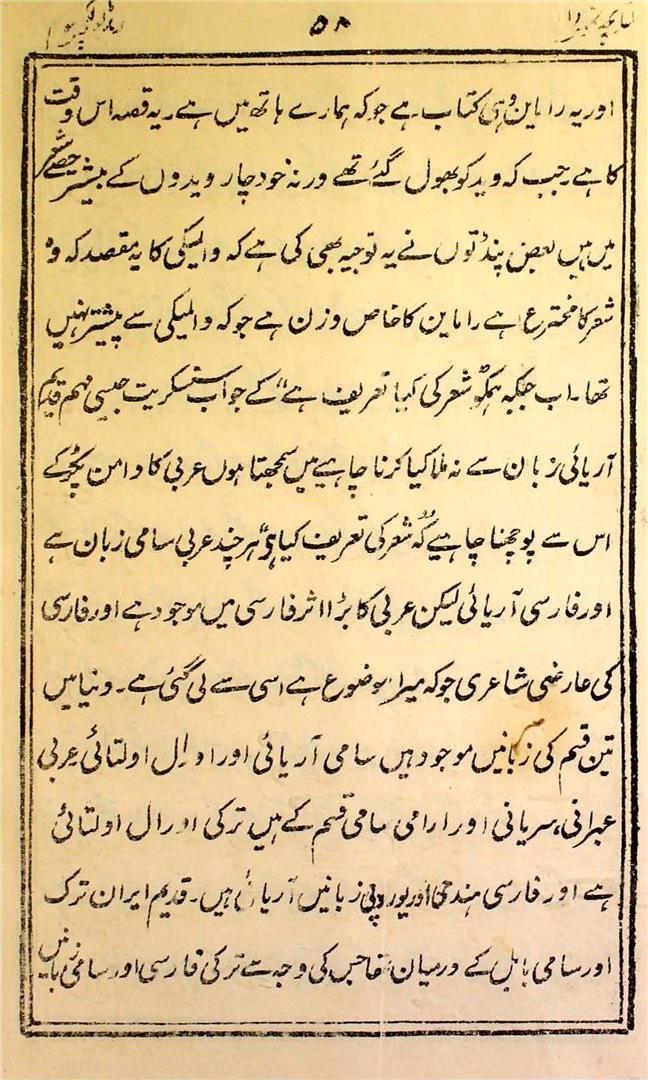 ۵۸
اور یہ راماین وہی کتاب ہے جو کہ ہمارے ہاتھ میں ہے۔ یہ قصہ اس وقت
کا ہے جب کہ وید کو بھول گئے تھے ورنہ خود چار ویدوں کے بیشتر حصے شعر
میں ہیں بعض پنڈتوں نے یہ توجیہ بھی کی ہے کہ والمیکی کا یہ مقصد کہ وہ
شعر کا مخترع ہے راماین کا خاص وزن ہے جو کہ والمیکی سے پیشتر نہیں
تھا۔ اب جبکہ ہمکو "شعر کی کیا تعریف ہے" کے جواب سنسکریت جیسی مہم قدیم
آریائی زبان سے نہ ملا کیا کرنا چاہیے میں سمجھتا ہوں عربی کا دامن پکڑ کے
اس سے پوچھنا چاہیے کہ "شعر کی تعریف کیا ہے" ہر چند عربی سامی زبان ہے
اور فارسی آریائی لیکن عربی کا بڑا اثر فارسی میں موجود ہے اور فارسی
کی عارضی شاعری جو کہ میرا موضوع ہے اسی سے لی گئی ہے۔ دنیا میں
تین قسم کی زبانیں موجود ہیں سامی آریائی اور اورال اولتائی عربی
عبرانی، سریانی اور ارامی سامی قسم کے ہیں ترکی اورال اولتائی
ہے اور فارسی ہندی اور یوروپی زبانیں آریائی ہیں۔ قدیم ایران ترک
اور سامی بابل کے درمیان کی وجہ سے ترکی فارسی اور سامی زبانیں